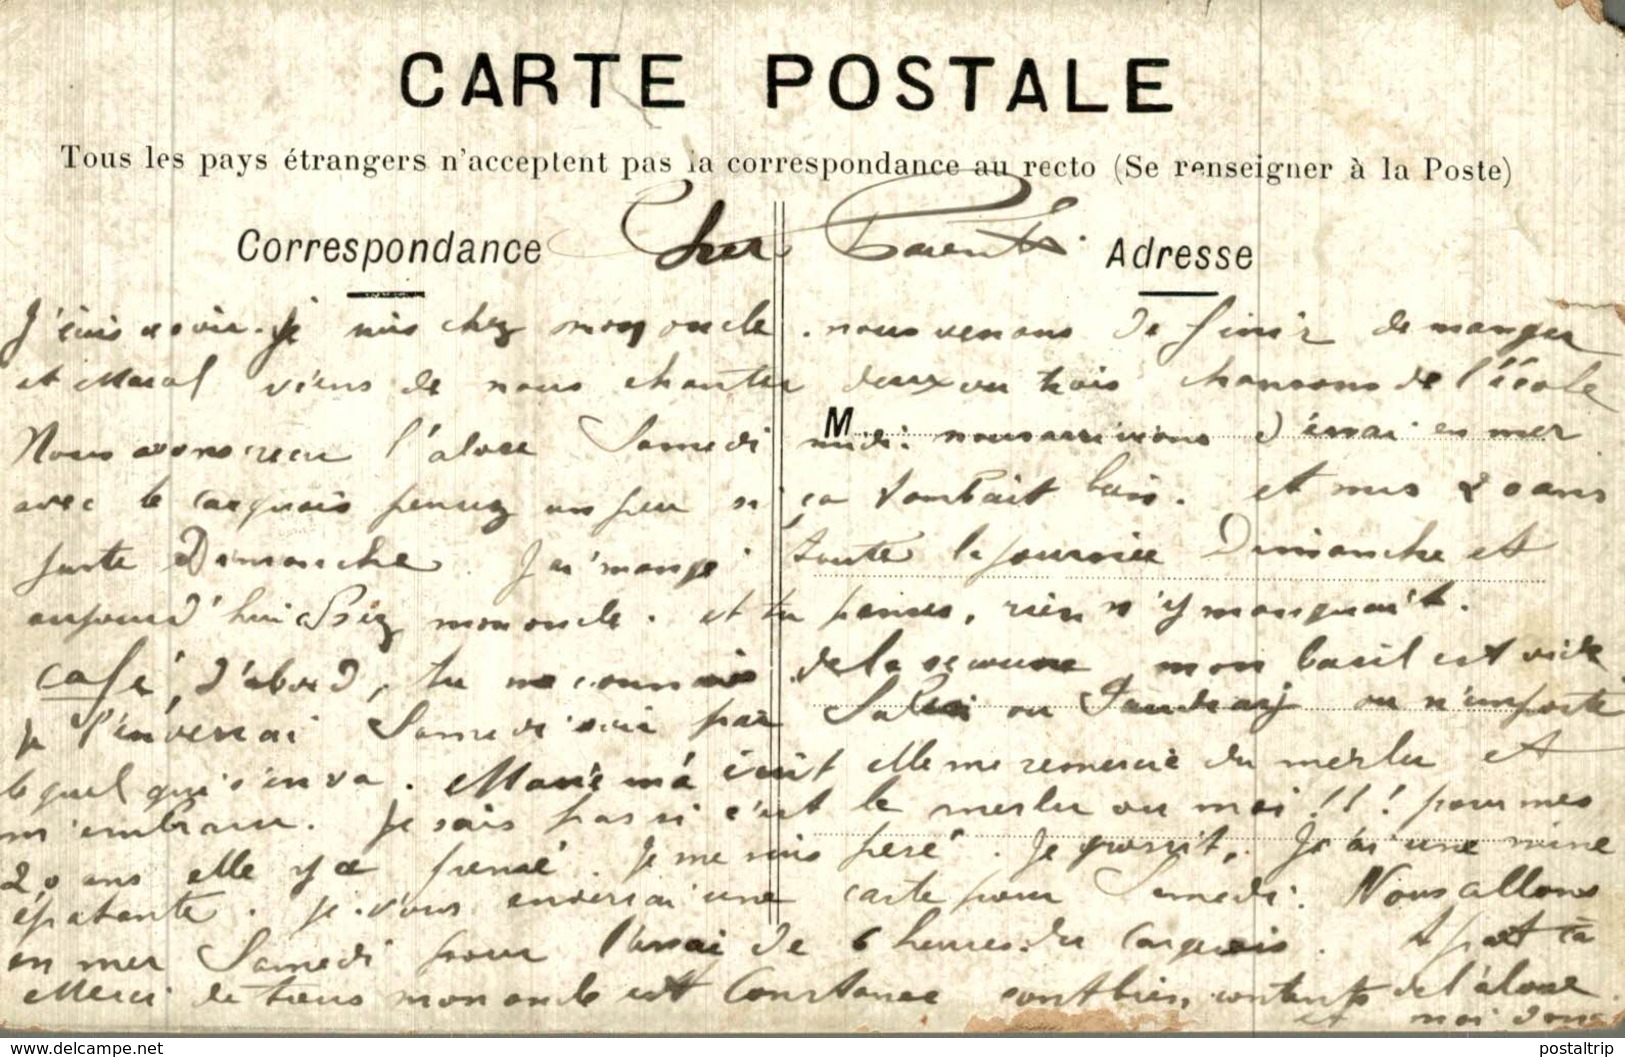 CARTE POSTALE
Tous les pays étrangers n'acceptent pas la correspondance au recto (Se renseigner à la Poste)
Correspondance
Adresse
M
Cher Parents
Je suis chez mon oncle. nous venons de finir de manger
et viens de nous chanter deux ou trois chansons de l'école
Nous avons reçu l'alose Samedi midi. nous arrivions d'essai en mer
avec le pensez un peu si ça tombait bien. et mes 20 ans
juste Dimanche. J'ai mangé toute la journée Dimanche et
aujourd'hui chez mon oncle. et tu penses, rien n'y manquait.
café, d'abord, tu me connais de la semaine mon baril est vide
je l'enverrai Samedi soir par ou ou n'importe
lequel qui s'en va. Marie m'a écrit elle me remercie du merlu et
m'embrasse. Je sais pas si c'est le merlu ou moi!!! pour mes
20 ans elle y a pensé. Je me suis pesé. Je grossit, J'ai une mine
épatante. je vous enverrai une carte pour Samedi. Nous allons
en mer Samedi pour l'essai de 6 heures du A part ça
Merci de tous mon oncle et Constance sont bien contents de l'alose
et moi donc
www.delcampe.net
postaltrip